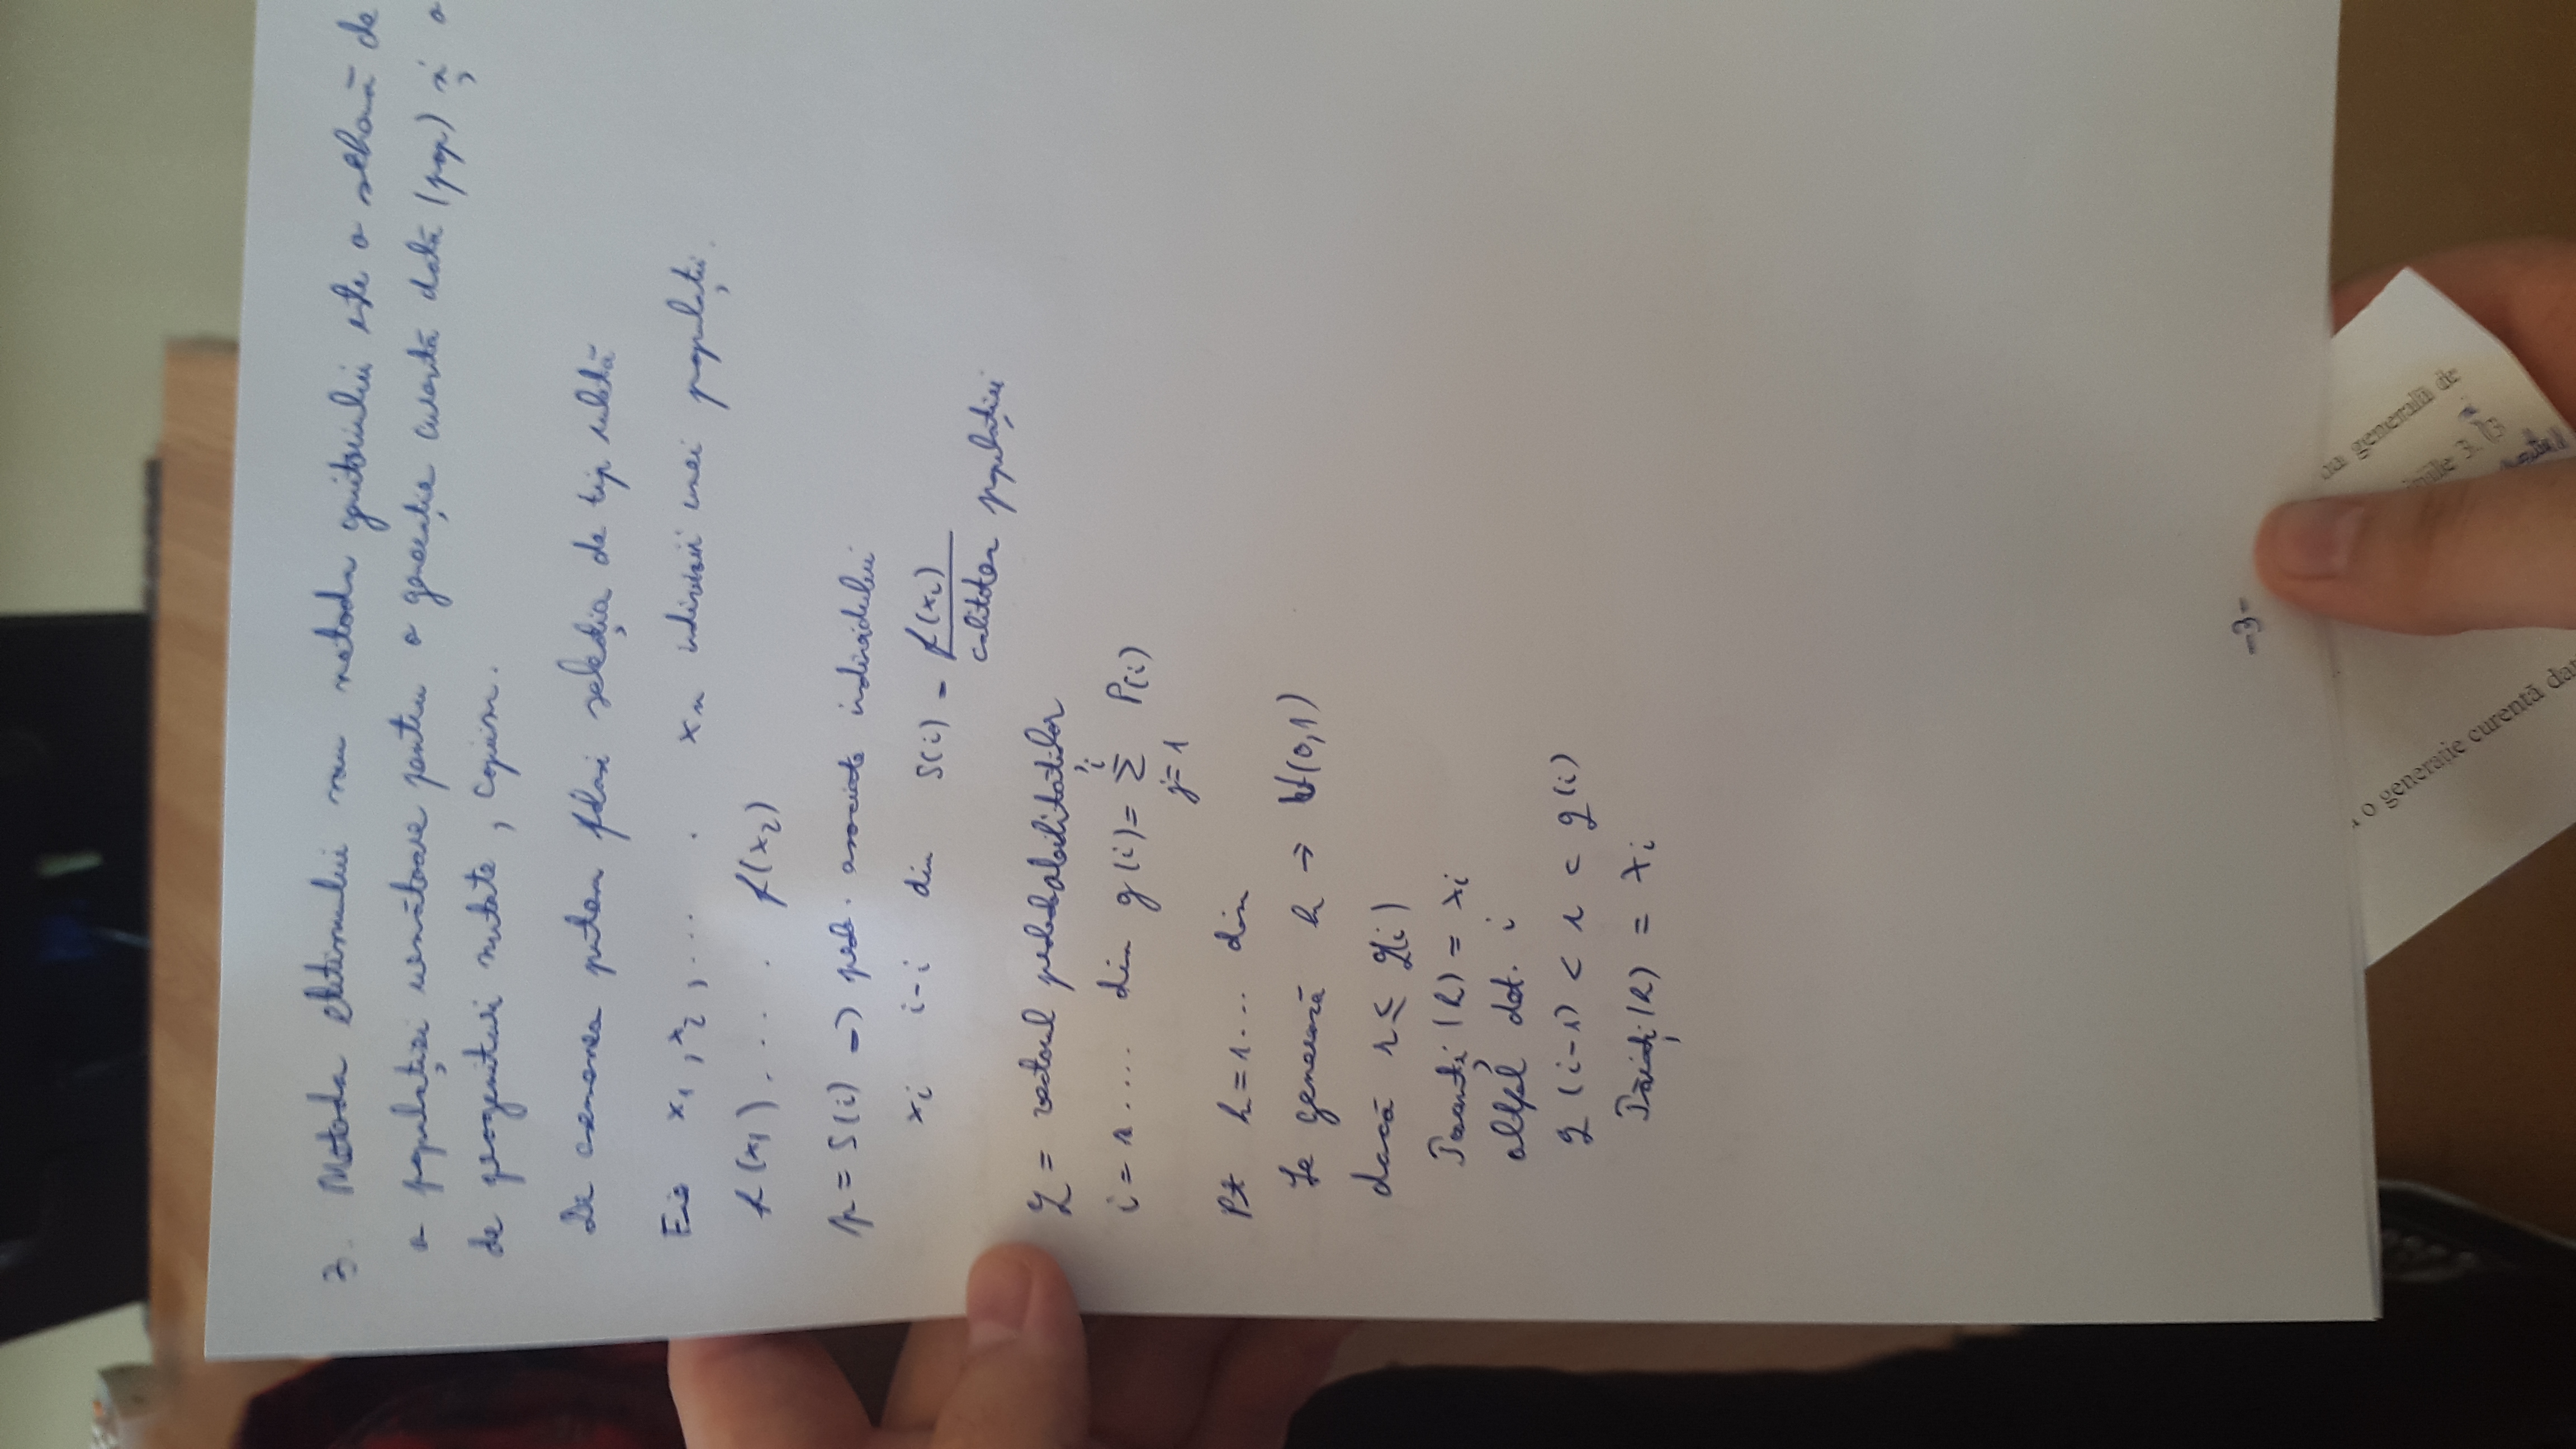 3. Metoda elitismului sau metoda genitorului este o schemă de
a populației următoare pentru o generație curentă dată (pop) și o
de progenituri mutate, copiim.
De asemenea putem folosi selecția de tip ruletă
Fie x1, x2, ... . xn indivizii unei populații.
f(x1) . ... . f(x2)
p = S(i) => prob. asociate individului
xi i-i din S(i) = f(xi)
calitatea populației
q = vectorul probabilităților
i = 1 .... din q(i) = i Σ j=1 P(i)
Pt h = 1 ... din
Se generază h → U(0,1)
dacă r ≤ q(i)
Părinți (h) = xi
altfel det. i
q (i-1) < r < q(i)
Părinți (h) = xi
-3-
o generație curentă dat
generală de